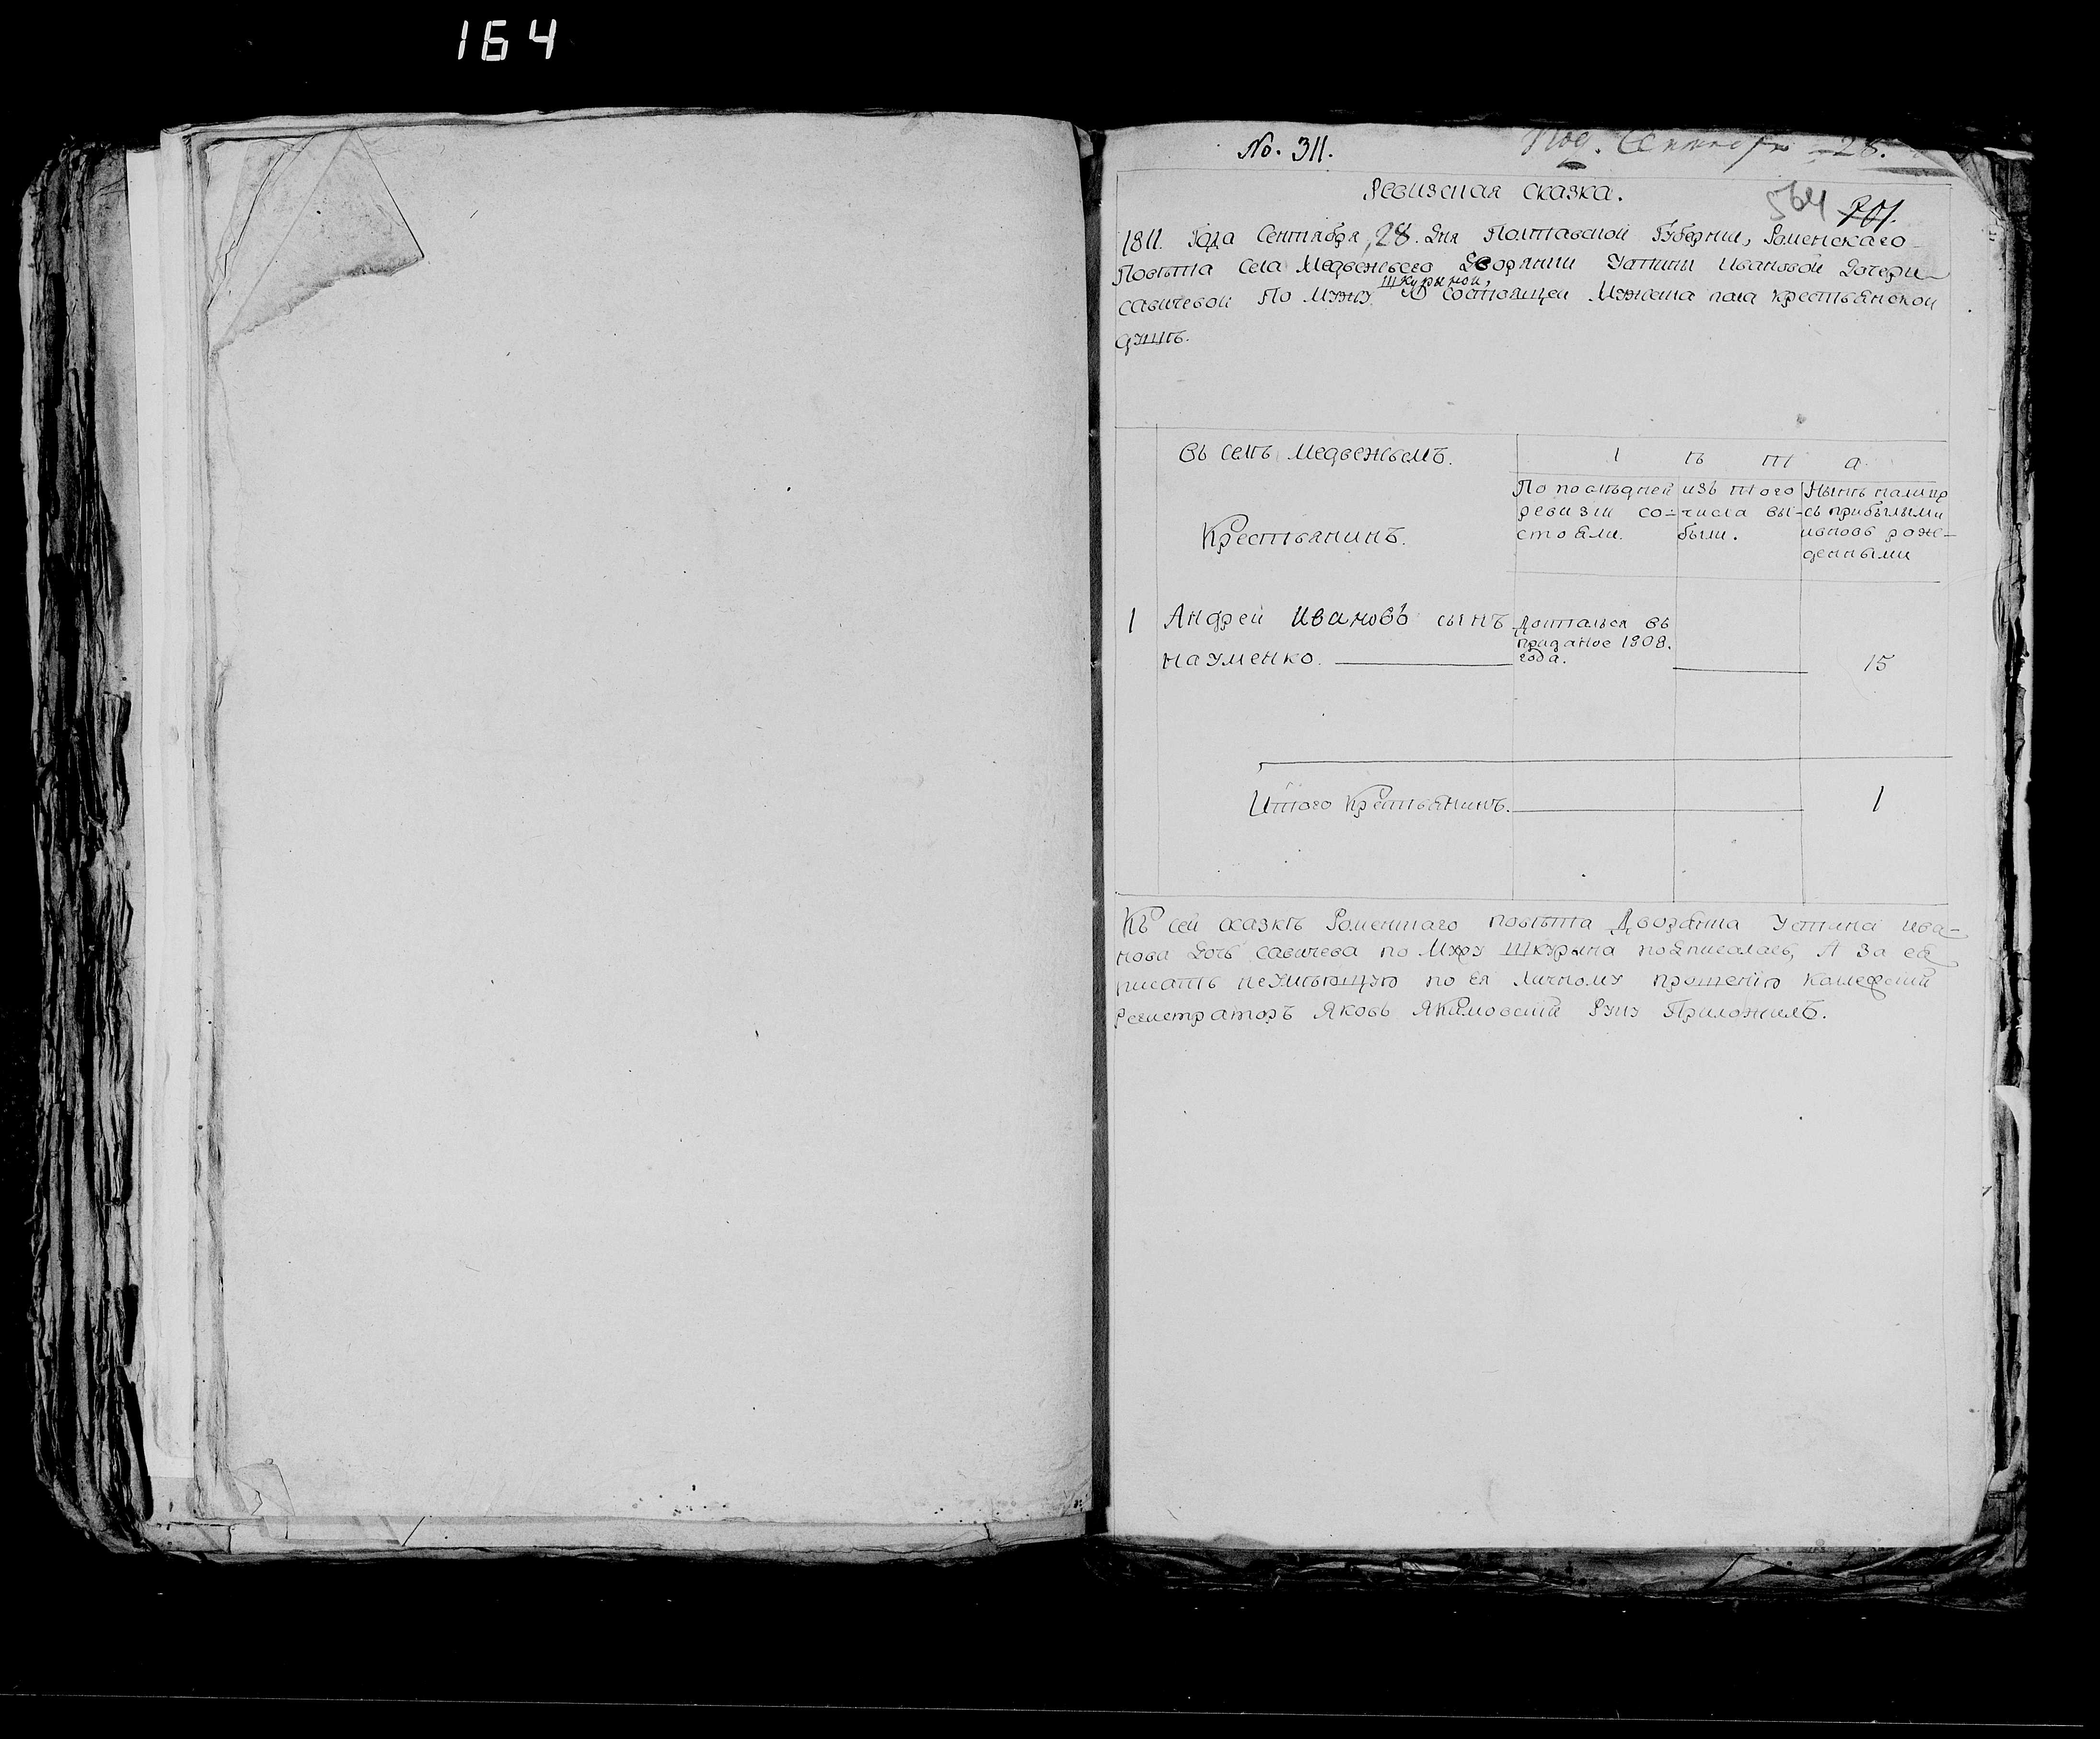 164
No. 311. Под. Сентября 28.
Ревизская сказка.
564 701.
1811. Года Сентября, 28. Дня Полтавской Губернии, Роменскаго
Повѣта Села Медвежьего Дворянки Устины Ивановой Дочери
Шкуриной,
Савичевой По Мужу О состоящей Мужеска пола крестьянской
душѣ.
Въ селѣ Медвежьемъ. лѣта
По последней изъ того Нынѣ налицо
ревизіи со- числа вы- съ прибылыми
Крестьянинъ. стояли. были. ивновь рож-
денными
1 Андрей Ивановъ сынъ Достался въ
приданое 1808.
Науменко. года. 15
Итого Крестьянинъ. 1
Къ сей сказкѣ Роменскаго повѣта Дворянка Устина Ива-
нова Дочь Савичева по Мужу Шкурина подписалась, А За ея
писать неумѣющую по Ея Личному прошенію Коллежскій
Регистраторъ Яковъ Якимовскій Руку Приложилъ.